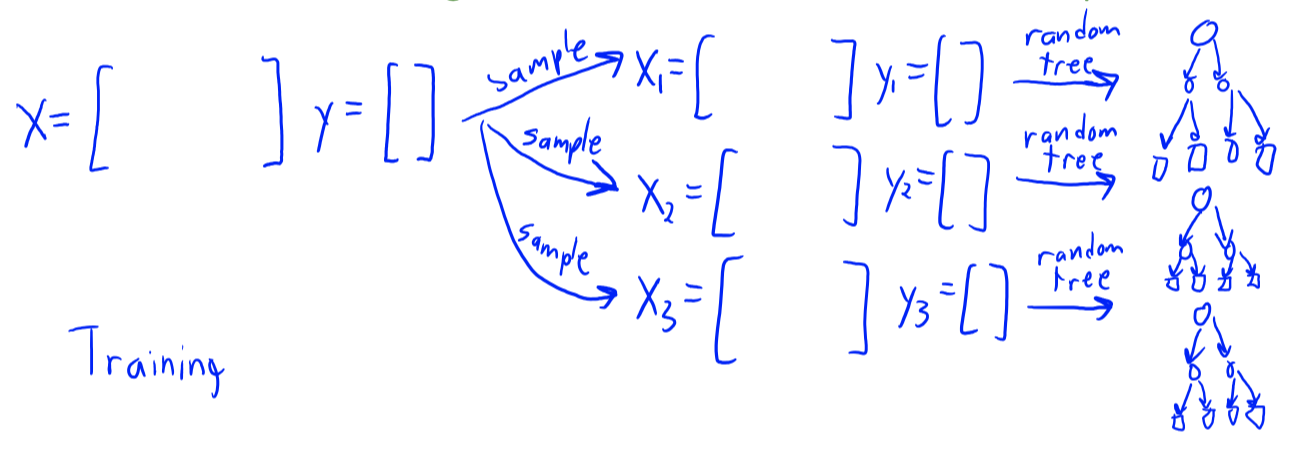 X = [ ] y = [ ]
sample
X₁ = [ ] y₁ = [ ]
random
tree
sample
X₂ = [ ] y₂ = [ ]
random
tree
sample
X₃ = [ ] y₃ = [ ]
random
tree
Training